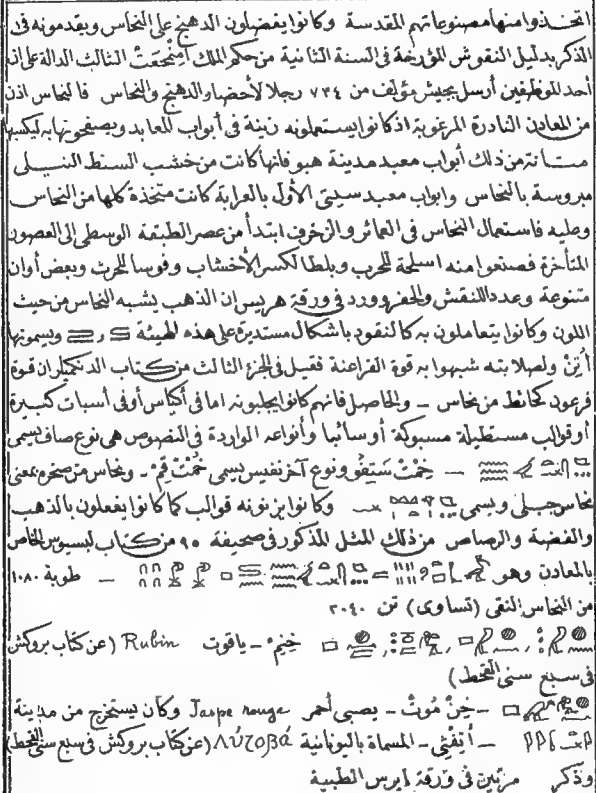 اتخذوا منها مصنوعاتهم المقدسة وكانوا يفضلون الدهنج على النحاس ويقدمونه فى
الذكر بدليل النقوش المؤرخة فى السنة الثانية من حكم الملك أمنمحعت الثالث الدالة على ان
أحد الموظفين أرسل بجيش مؤلف من ٧٣٤ رجلا لأحضار الدهنج والنحاس فالنحاس اذن
من المعادن النادرة المرغوبة اذ كانوا يستعملونه زينة فى أبواب المعابد ويصفحونها به ليكسبها
متانة من ذلك أبواب معبد مدينة هبو فانها كانت من خشب السنط النيلى
مبروسة بالنحاس وابواب معبد سيتى الأول بالعرابة كانت متخذة كلها من النحاس
وعليه فاستعمال النحاس فى العمائر والزخرف ابتدأ من عصر الطبقة الوسطى إلى العصور
المتأخرة فصنعوا منه اسلحة للحرب وبلطا لكسر الأخشاب وفوسا للحرث وبعض أوان
متنوعة وعدد اللنقش والحفر وورد فى ورقة هريس ان الذهب يشبه النحاس من حيث
اللون وكانوا يتعاملون به كالنقود باشكال مستديرة على هذه الهيئة و ويسمونها
أُتِنْ ولصلابته شبهوا به قوة الفراعنة فقيل فى الجزء الثالث من كتاب الدنكميلر ان قوة
فرعون كحائط من نحاس – والحاصل فانهم كانوا يجلبونه اما فى أكياس أو فى أسبات كبيرة
أو قوالب مستطيلة مسبوكة أو سائبا وأنواعه الواردة فى النصوص هى نوع صاف يسمى
– خمْتْ سَتِفو ونوع آخر نفيس يسمى خمْتْ قِمْ – ونحاس من صخره بمعنى
نحاس جبلى ويسمى وكانوا يزنونه قوالب كما كانوا يفعلون بالذهب
والفضة والرصاص من ذلك المثل المذكور فى صحيفة ٩٥ من كتاب لبسيوس الخاص
بالمعادن وهو – طوبة ١٠٨٠
من النحاس النقى (تساوى) تن ٢٠٤٠
خِنِمْ – ياقوت Rubin (عن كتاب بروكش
فى سبع سنى القحط)
– خِنْ مُوتْ – يصبى أحمر Jaspe rouge وكان يستخرج من مدينة
– المسماة باليونانية (عن كتاب بروكش فى سبع سنى القحط)
وذكر مرتين فى ورقة ايبرس الطبية